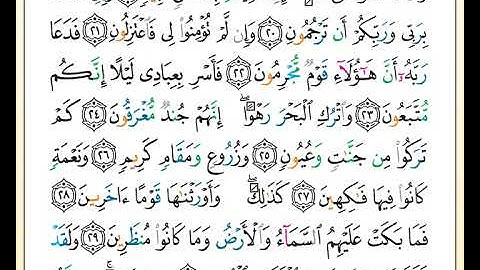 بِرَبِّي وَرَبِّكُمْ أَن تَرْجُمُونِ ۝٢٠ وَإِن لَّمْ تُؤْمِنُوا۟ لِي فَٱعْتَزِلُونِ ۝٢١ فَدَعَا
رَبَّهُۥٓ أَنَّ هَٰٓؤُلَآءِ قَوْمٌ مُّجْرِمُونَ ۝٢٢ فَأَسْرِ بِعِبَادِي لَيْلًا إِنَّكُم
مُّتَّبَعُونَ ۝٢٣ وَٱتْرُكِ ٱلْبَحْرَ رَهْوًا ۖ إِنَّهُمْ جُندٌ مُّغْرَقُونَ ۝٢٤ كَمْ
تَرَكُوا۟ مِن جَنَّٰتٍ وَعُيُونٍ ۝٢٥ وَزُرُوعٍ وَمَقَامٍ كَرِيمٍ ۝٢٦ وَنَعْمَةٍ
كَانُوا۟ فِيهَا فَٰكِهِينَ ۝٢٧ كَذَٰلِكَ ۖ وَأَوْرَثْنَٰهَا قَوْمًا ءَاخَرِينَ ۝٢٨
فَمَا بَكَتْ عَلَيْهِمُ ٱلسَّمَآءُ وَٱلْأَرْضُ وَمَا كَانُوا۟ مُنظَرِينَ ۝٢٩ وَلَقَدْ